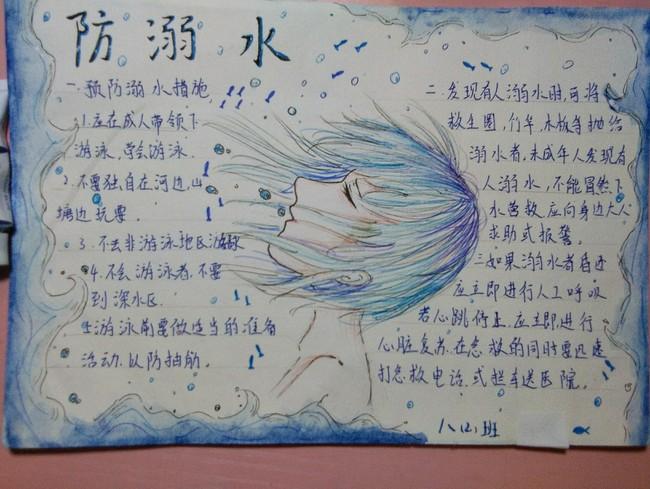 防溺水
一.预防溺水措施
1.应在成人带领下
游泳,学会游泳.
2.不要独自在河边,山
塘边玩耍.
3.不去非游泳地区游泳
4.不会游泳者,不要
到深水区.
5.游泳前要做适当的准备
活动.以防抽筋.
二.发现有人溺水时,可将
救生圈,竹竿,木板等抛给
溺水者,未成年人发现有
人溺水,不能冒然下
水营救,应向身边大人
求助或报警.
三如果溺水者昏迷
应立即进行人工呼吸
若心跳停止,应立即进行
心脏复苏.在急救的同时要迅速
打急救电话,或拦车送医院.
八(4)班